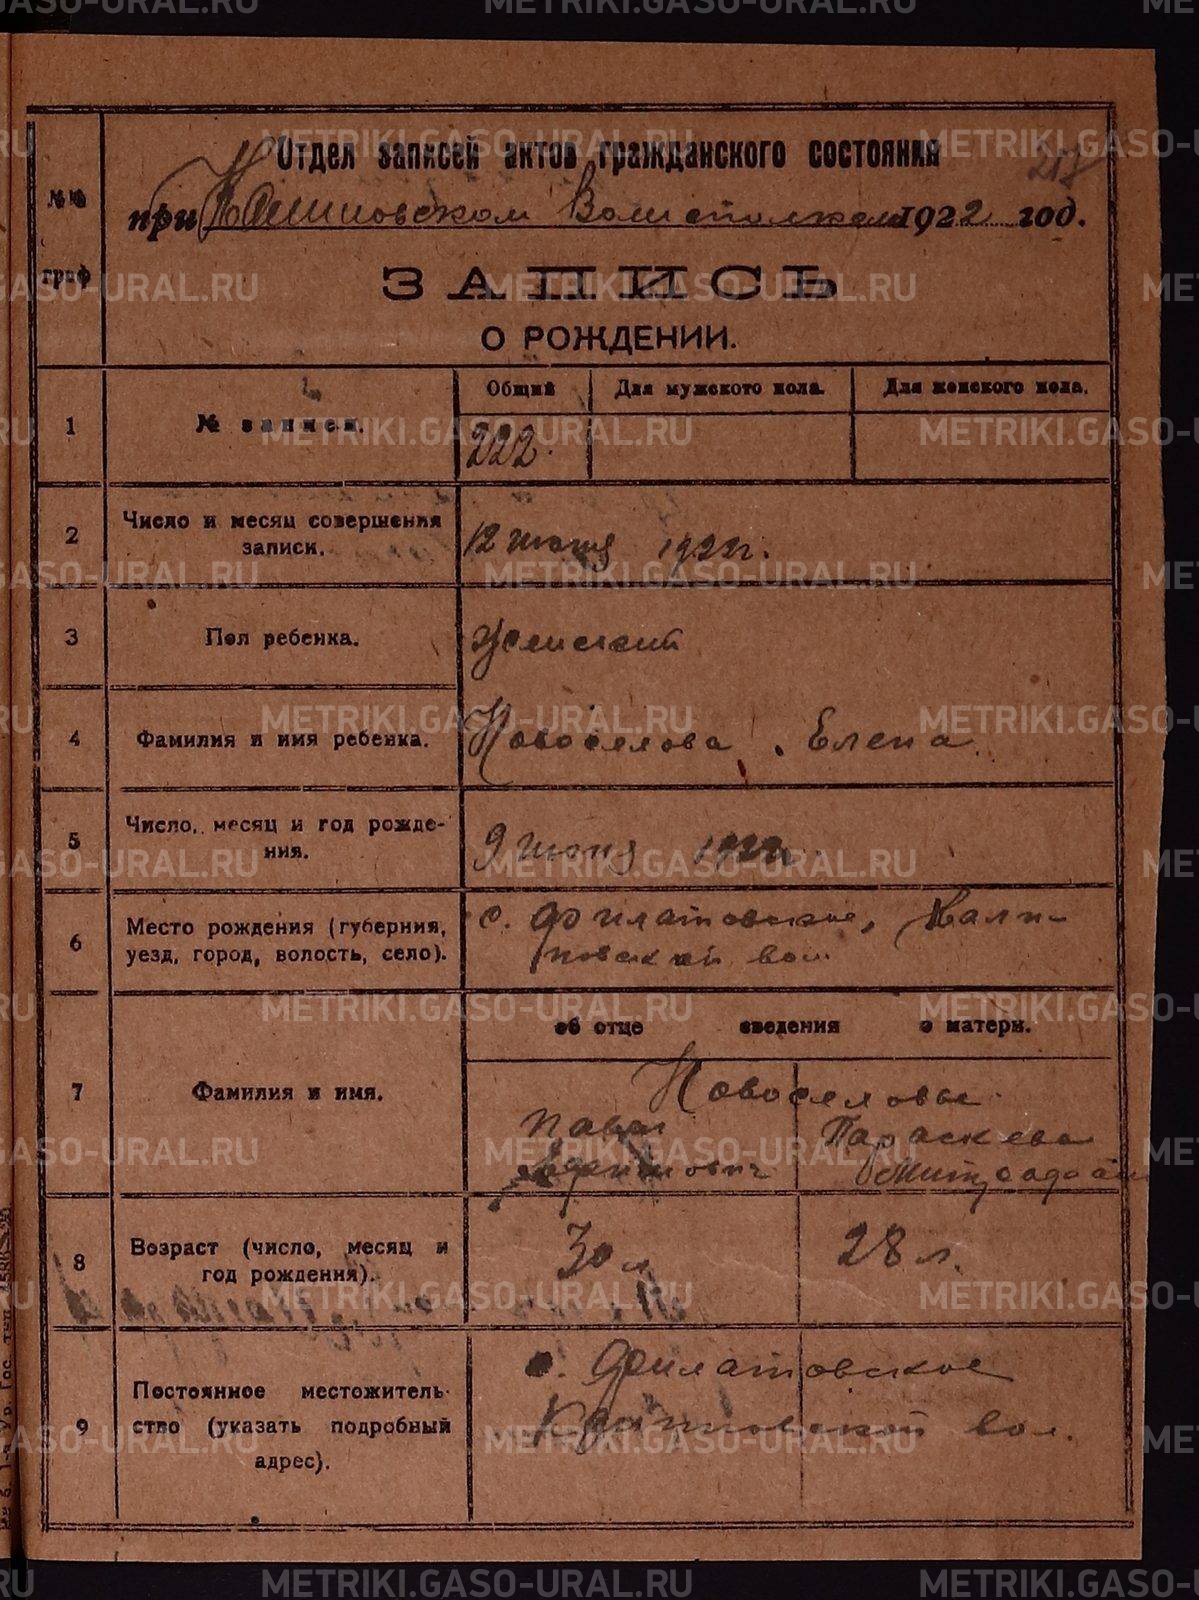 Отдел записей актов гражданского состояния
218
№№ граф
при Калиновском Волисполкоме 1922 год.
ЗАПИСЬ
О РОЖДЕНИИ.
1
№ записи.
Общий
Для мужского пола.
Для женского пола.
222.
2
Число и месяц совершения
записи.
12 июня 1922 г.
3
Пол ребенка.
Женский
4
Фамилия и имя ребенка.
Новоселова Елена
5
Число, месяц и год рожде-
ния.
9 июня 1922 г.
6
Место рождения (губерния,
уезд, город, волость, село).
с. Филатовское, Кали-
новской вол.
об отце сведения о матери.
7
Фамилия и имя.
Новоселовы
Павел
Параскева
8
Возраст (число, месяц и
год рождения).
30 л
28 л.
9
Постоянное местожитель-
ство (указать подробный
адрес).
с. Филатовское
Калиновской вол.
METRIKI.GASO-URAL.RU